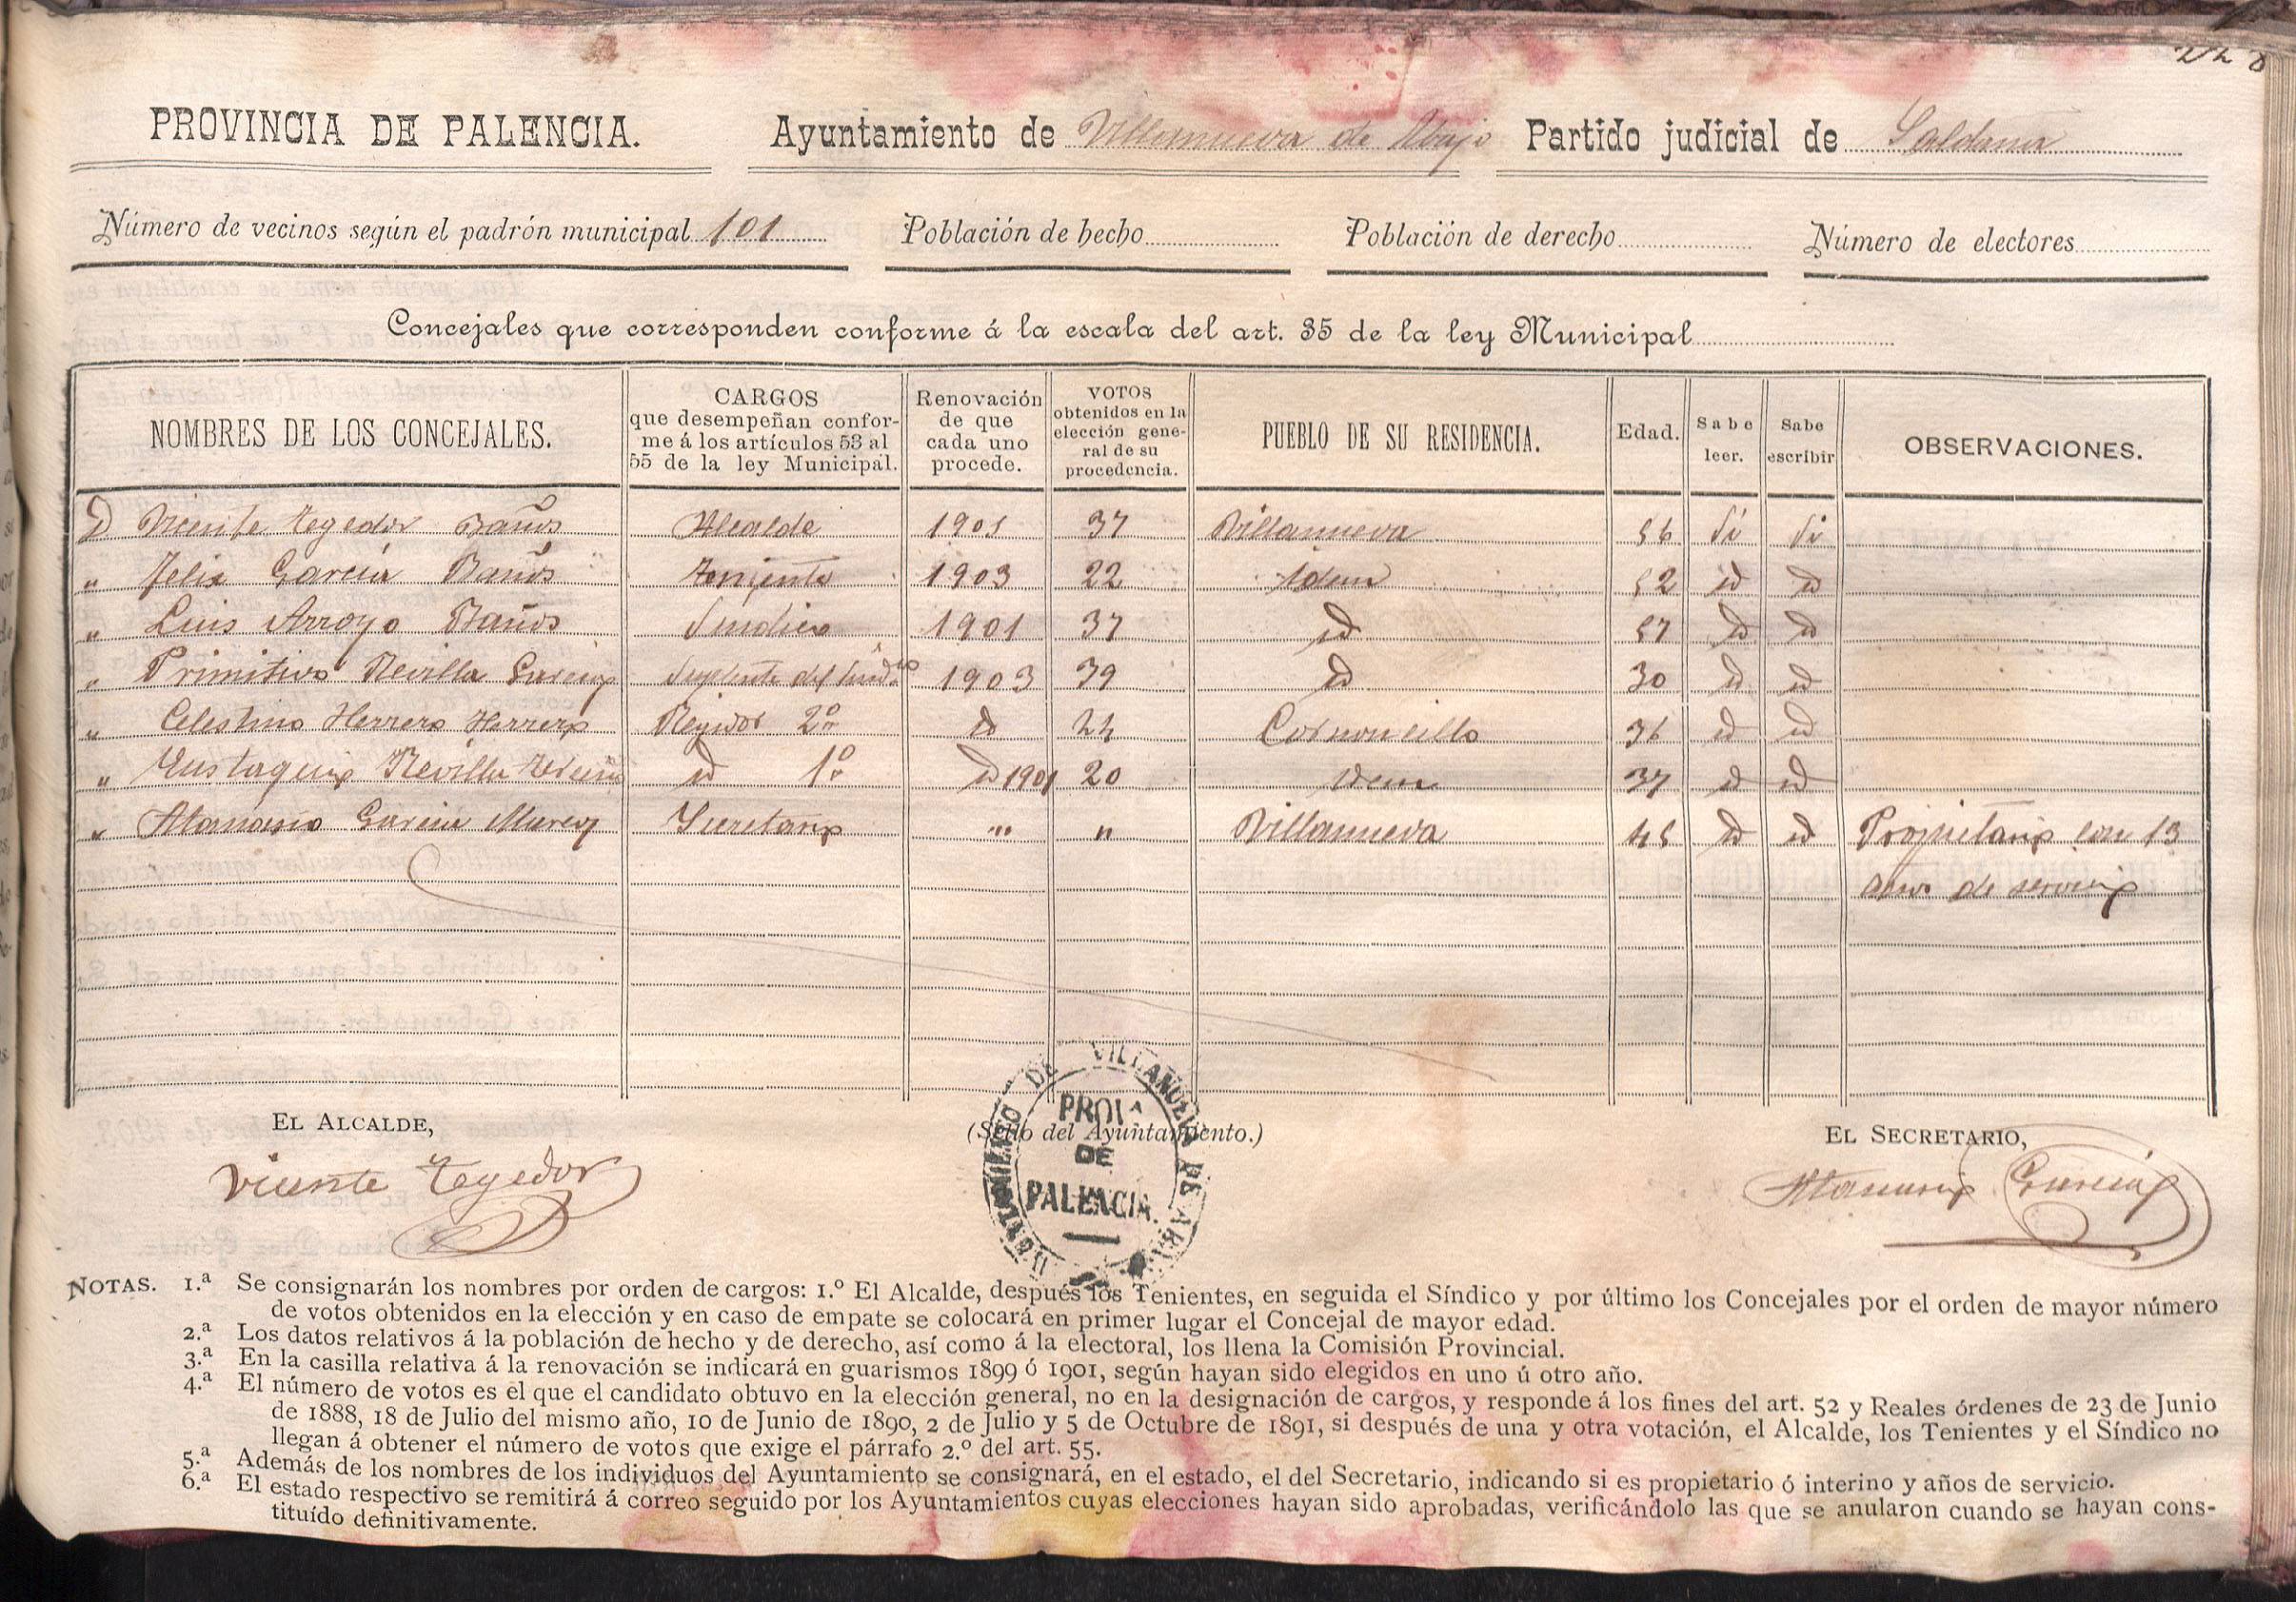 228
PROVINCIA DE PALENCIA. Ayuntamiento de Villanueva de Abajo Partido judicial de Saldaña
Número de vecinos según el padrón municipal 101 Población de hecho Población de derecho Número de electores
Concejales que corresponden conforme á la escala del art. 35 de la ley Municipal
NOMBRES DE LOS CONCEJALES. CARGOS que desempeñan confor- me á los artículos 53 al 55 de la ley Municipal. Renovación de que cada uno procede. VOTOS obtenidos en la elección gene- ral de su procedencia. PUEBLO DE SU RESIDENCIA. Edad. Sabe leer. Sabe escribir OBSERVACIONES.
D Vicente Tegedor Baños Alcalde 1901 37 Villanueva 56 Si Si
" Felix García Baños Teniente 1903 22 Idem 52 id id
" Luis Arroyo Baños Sindico 1901 37 id 57 id id
" Primitivo Revilla García Suplente del Sindico 1903 39 id 30 id id
" Celestino Herrero Herrero Regidor 2º id 24 Cornoncillo 36 id id
" Eustaquio Revilla id 1º id 1901 20 idem 37 id id
" Atanasio García Secretario " " Villanueva 45 id id Propietario con 13
años de servicio
EL ALCALDE, (Sello del Ayuntamiento.) EL SECRETARIO,
Vicente Tegedor Atanasio García
AYUNTAMIENTO DE VILLANUEVA DE ABAJO
PROVᴬ
DE
PALENCIA.
NOTAS. 1.ª Se consignarán los nombres por orden de cargos: 1.º El Alcalde, después los Tenientes, en seguida el Síndico y por último los Concejales por el orden de mayor número
de votos obtenidos en la elección y en caso de empate se colocará en primer lugar el Concejal de mayor edad.
2.ª Los datos relativos á la población de hecho y de derecho, así como á la electoral, los llena la Comisión Provincial.
3.ª En la casilla relativa á la renovación se indicará en guarismos 1899 ó 1901, según hayan sido elegidos en uno ú otro año.
4.ª El número de votos es el que el candidato obtuvo en la elección general, no en la designación de cargos, y responde á los fines del art. 52 y Reales órdenes de 23 de Junio
de 1888, 18 de Julio del mismo año, 10 de Junio de 1890, 2 de Julio y 5 de Octubre de 1891, si después de una y otra votación, el Alcalde, los Tenientes y el Síndico no
llegan á obtener el número de votos que exige el párrafo 2.º del art. 55.
5.ª Además de los nombres de los individuos del Ayuntamiento se consignará, en el estado, el del Secretario, indicando si es propietario ó interino y años de servicio.
6.ª El estado respectivo se remitirá á correo seguido por los Ayuntamientos cuyas elecciones hayan sido aprobadas, verificándolo las que se anularon cuando se hayan cons-
tituído definitivamente.